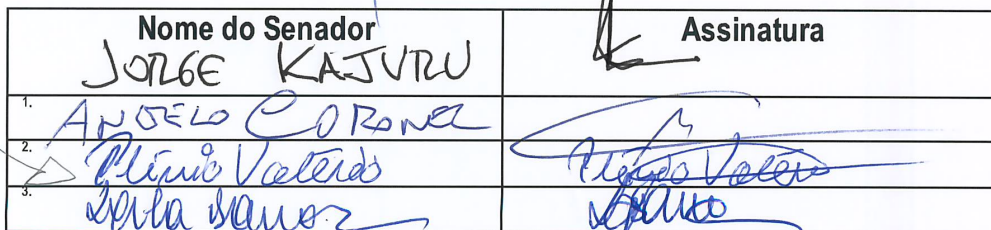 Nome do Senador Assinatura
JORGE KAJURU
1. ANGELO CORONEL
2. Plínio Valério Plínio Valério
3.